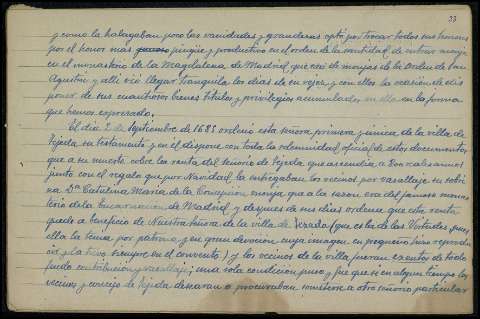 33
y como la halagaban poco las vanidades y grandezas optó por trocar todos sus honores
por el honor más pingüe y productivo en el orden de la santidad, de entrar monja
en el monasterio de la Magdalena de Madrid, que era de monjas de la Orden de San
Agustín y allí vió llegar tranquila los días de su vejez, y con ellos la ocasión de dis
poner de sus cuantiosos bienes títulos y privilegios acumulados en ella en la forma
que hemos expresado.
El día 2 de Septiembre de 1683 ordenó esta señora primera y única de la villa de
Tejeda su testamento y en él dispone con toda la solemnidad oficial de estos documentos
que a su muerte cobre la renta del señorío de Tejeda que ascendía a 200 reales anuales
junto con el regalo que por Navidad la entregaban los vecinos por vasallaje su sobri
na Dª Catalina María de la Concepción monja que a la sazón era del famoso monas
terio de la Encarnación de Madrid y después de sus días ordena que esta renta
quede a beneficio de Nuestra Señora de la villa de (que es la de las Virtudes pues
ella la tenía por patrona y en gran devoción cuya imagen en pequeño hizo reprodu
cir y la tuvo siempre en el convento) y los vecinos de la villa fueran exentos de todo
feudo contribución y vasallaje; una sola condición puso y fué que si en algun tiempo los
vecinos y concejo de Tejeda desearan o procuraban someterse a otro señorío particular